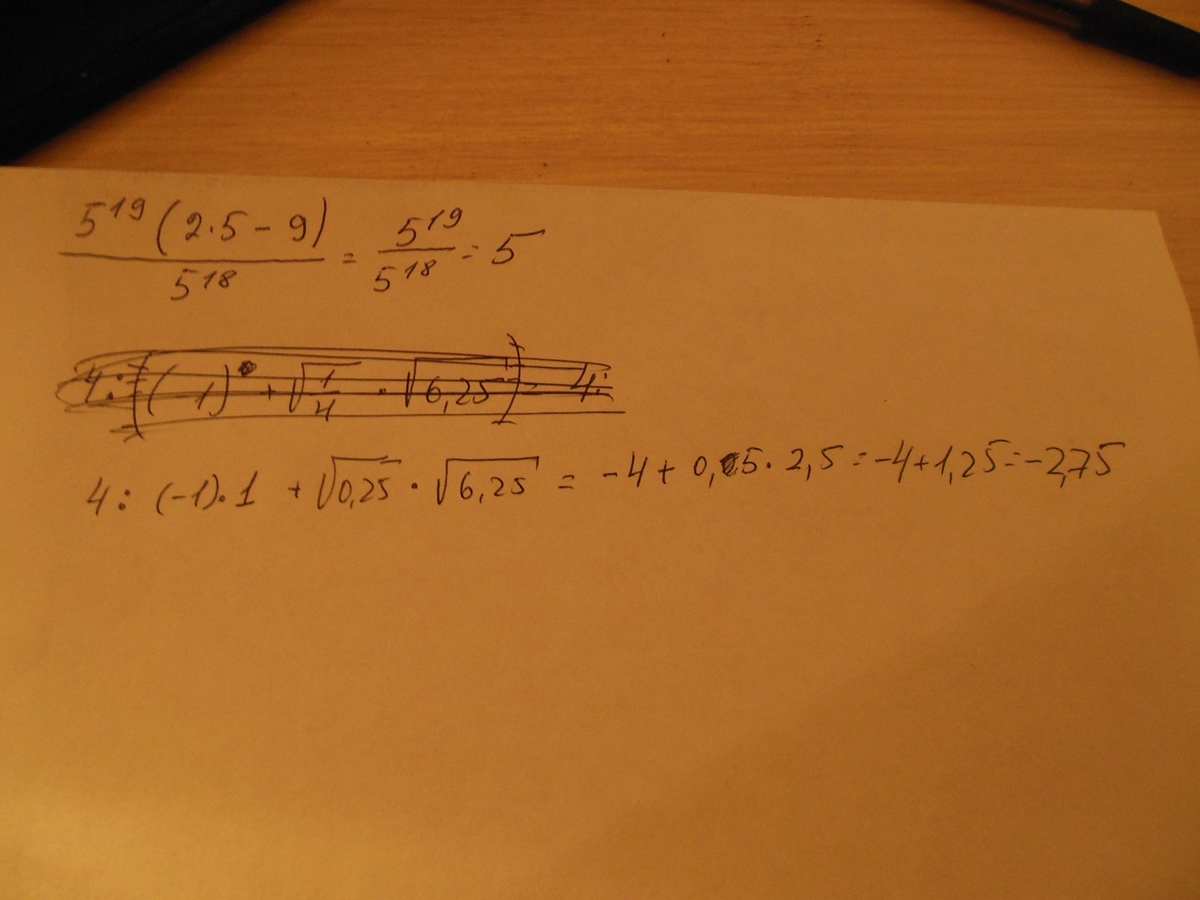 5^19 (2·5 - 9) / 5^18 = 5^19 / 5^18 = 5
4 : ((-1) + √(1/4) · √6,25) = 4:
4 : (-1)·1 + √0,25 · √6,25 = -4 + 0,5 · 2,5 = -4 + 1,25 = -2,75